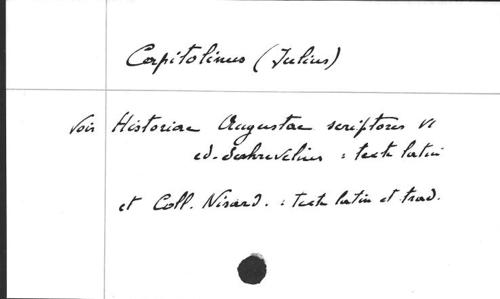 Capitolinus (Julius)
voir Historiae Augustae scriptores VI
ed. Schrevelius : texte latin
et Coll. Nisard. : texte latin et trad.